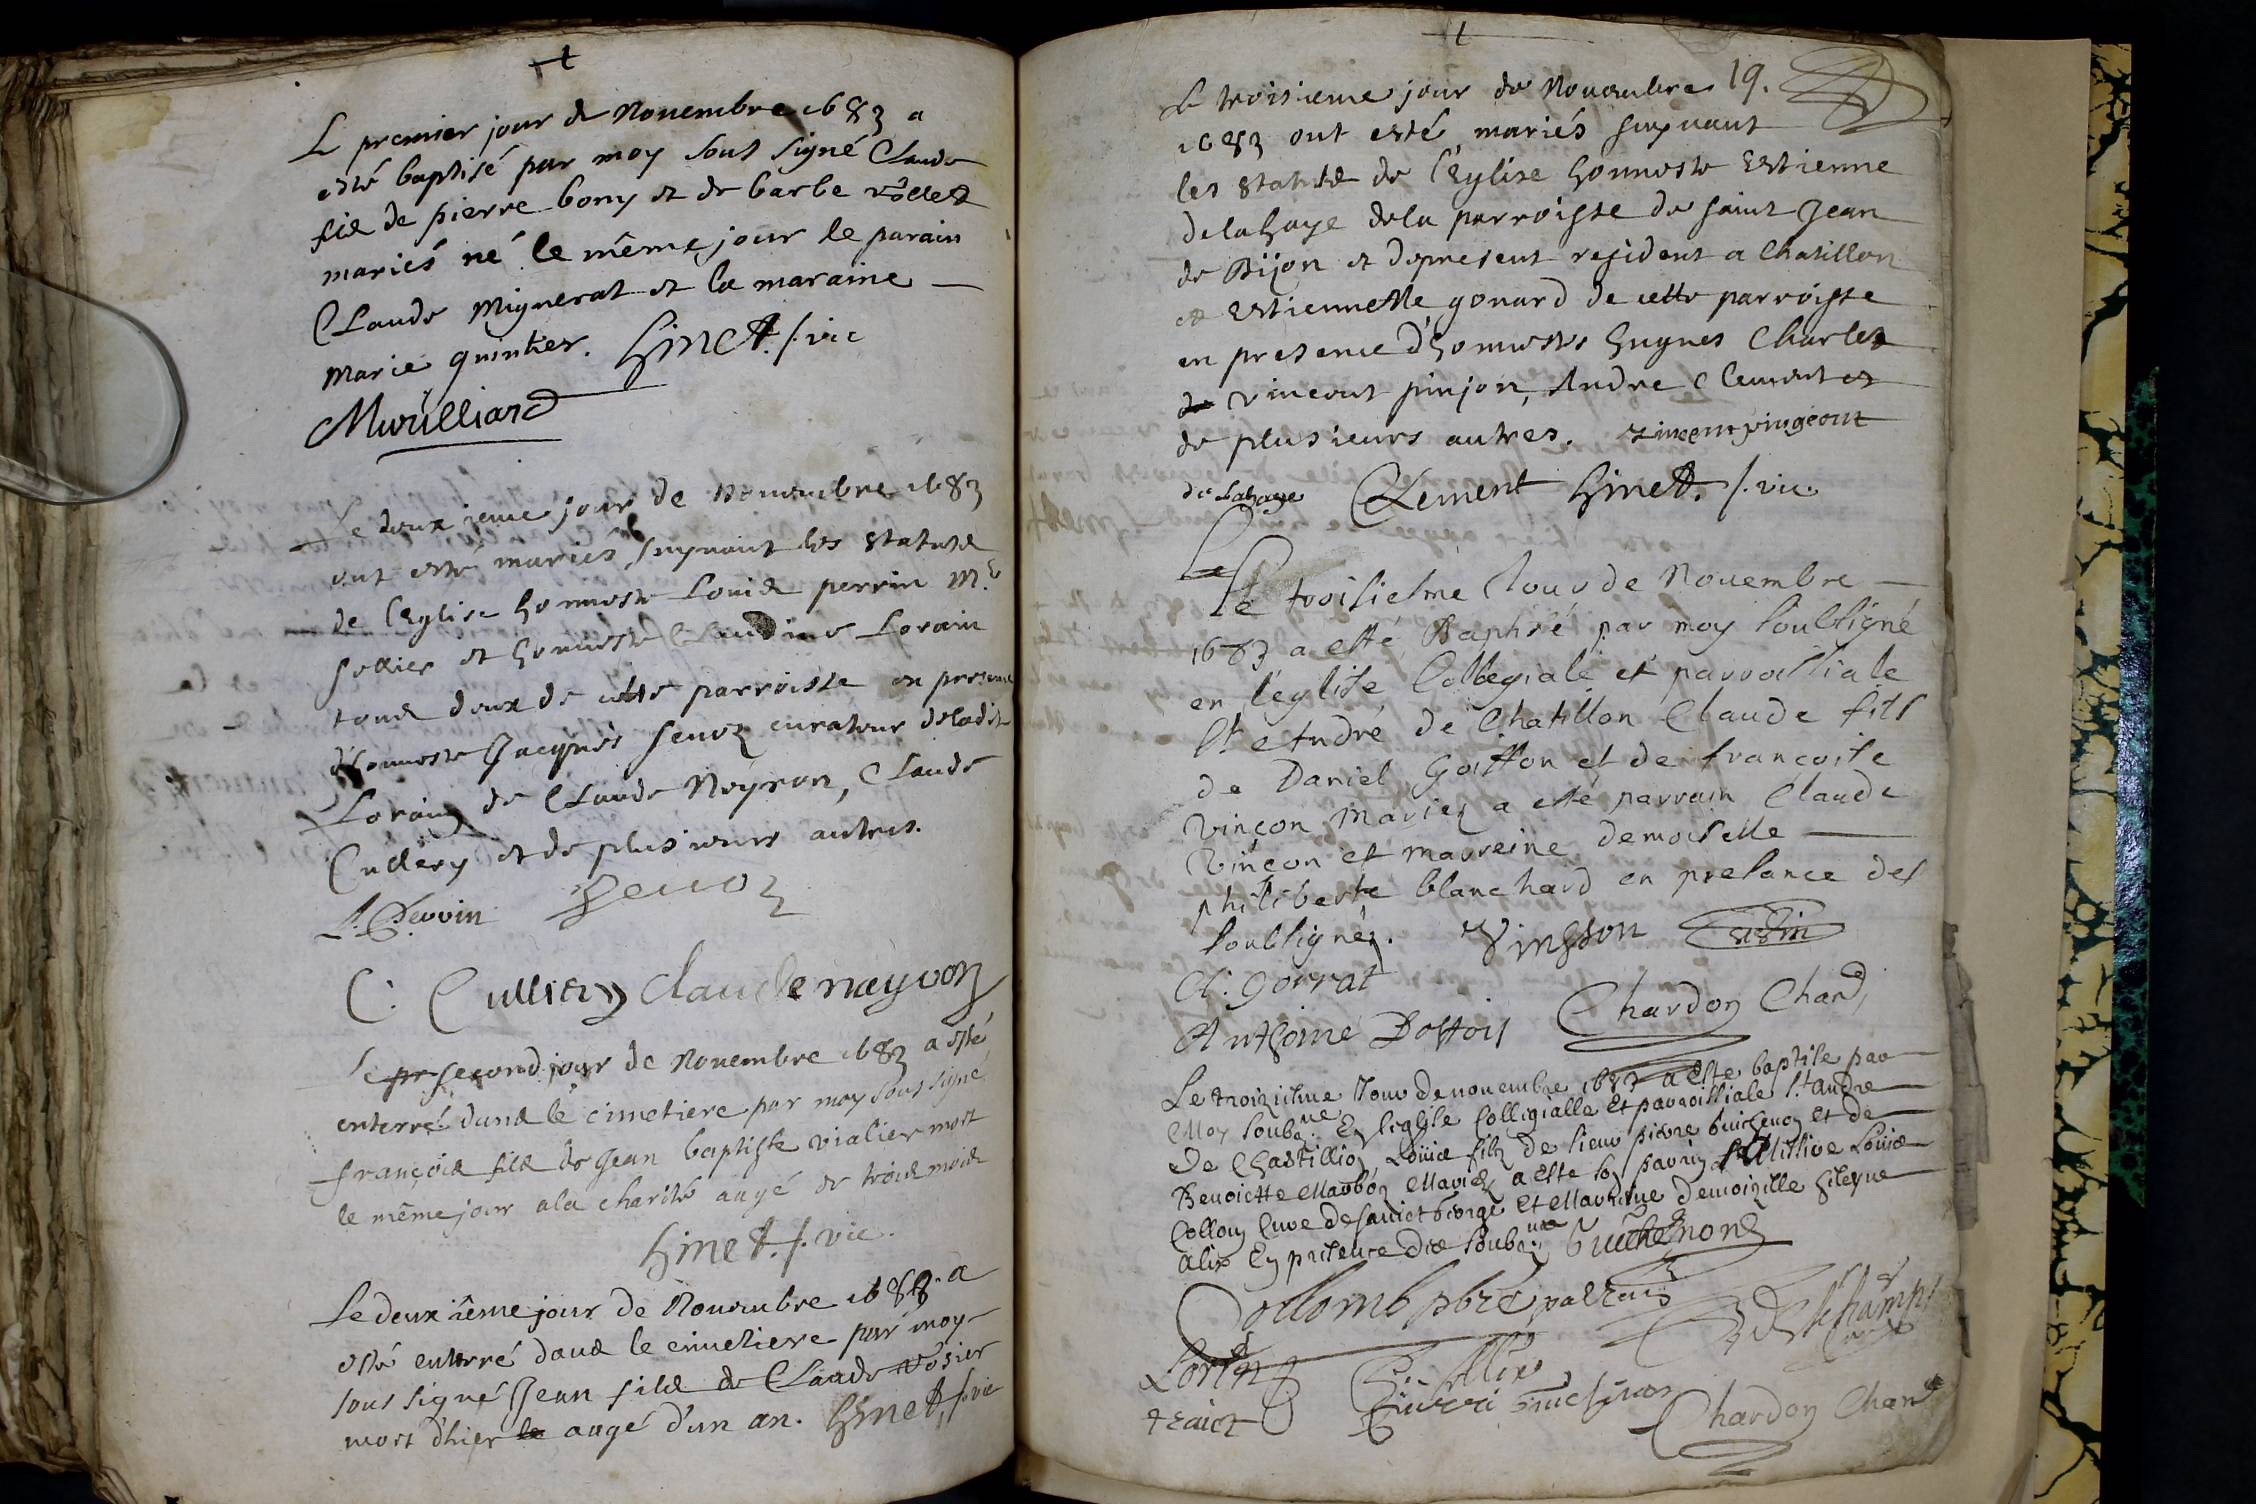 Le premier jour de Nouembre 1683 a
esté baptisé par moy sous signé Claude
fils de pierre bony et de barbe rollet
mariés né le même jour le parain
Claude Mignerat et la maraine
Marie quintier. Hinet. s. vic
Le deuxieme jour de Nouembre 1683
ont esté mariés suyuant les statuts
de l'Eglise honneste Louis perrin M.e
sellier et honneste Claudine Lorain
tous deux de cette parroisse en presence
d'honneste Jacques seuoz curateur deladit
Lorain, de Claude Neyron, Claude
Cullery et de plusieurs autres.
L. Perrin seuoz
C. Claude nayron
Le pr second jour de Nouembre 1683 a esté
enterré dans le cimetiere par moy sous signé
françois fils de Jean baptiste vialier mort
le même jour ala charité augé de trois mois
Hinet. s. vic.
Le deuxieme jour de Nouembre 1683. a
esté enterré dans le cimetiere par moy
sous signé Jean fils de Claude rosier
mort d'hier le augé d'un an. Hinet, s. vic
19.
Le troisieme jour de Nouembre
1683 ont esté mariés suyuant
les statuts de l'Eglise honneste Estienne
delahaye dela parroisse de saint Jean
de Dijon et depresent resident a Chatillon
et Estiennette gonard de cette parroisse
en presence d'honnestes hugues Charles
de vincent pinjon, Andre Clement et
de plusieurs autres. vincent pingeont
de Lahaye Clement Hinet. s. vic.
Le troisiesme Jour de Nouembre
1683 a esté Baptisé par moy soubsigné
en l'eglise Collegiale et parroissiale
St André de Chatillon Claude fils
de Daniel Goiffon et de françoise
vinçon Mariez a esté parrain Claude
vinçon et marreine demoiselle
philiberte blanchard en presance des
soubsignéz. Vinsson
Cl. Gorrat
Anthoine Chardon Chan
Le troiziesme Jour de nouembre 1683 a este baptise par
Moy soubz.ne En leglise Collegialle Et parroissiale St Andre
De Chastillion Louis filz de sieur pierre Guichenon Et de
Benoictte Marbon Mariez a este son parrin Louis
Collomb Cure de sainct george Et Marrine demoizelle
Alix En presence des soubz.ne Guichenon
Collomb pbre parrain
Chardon Chan